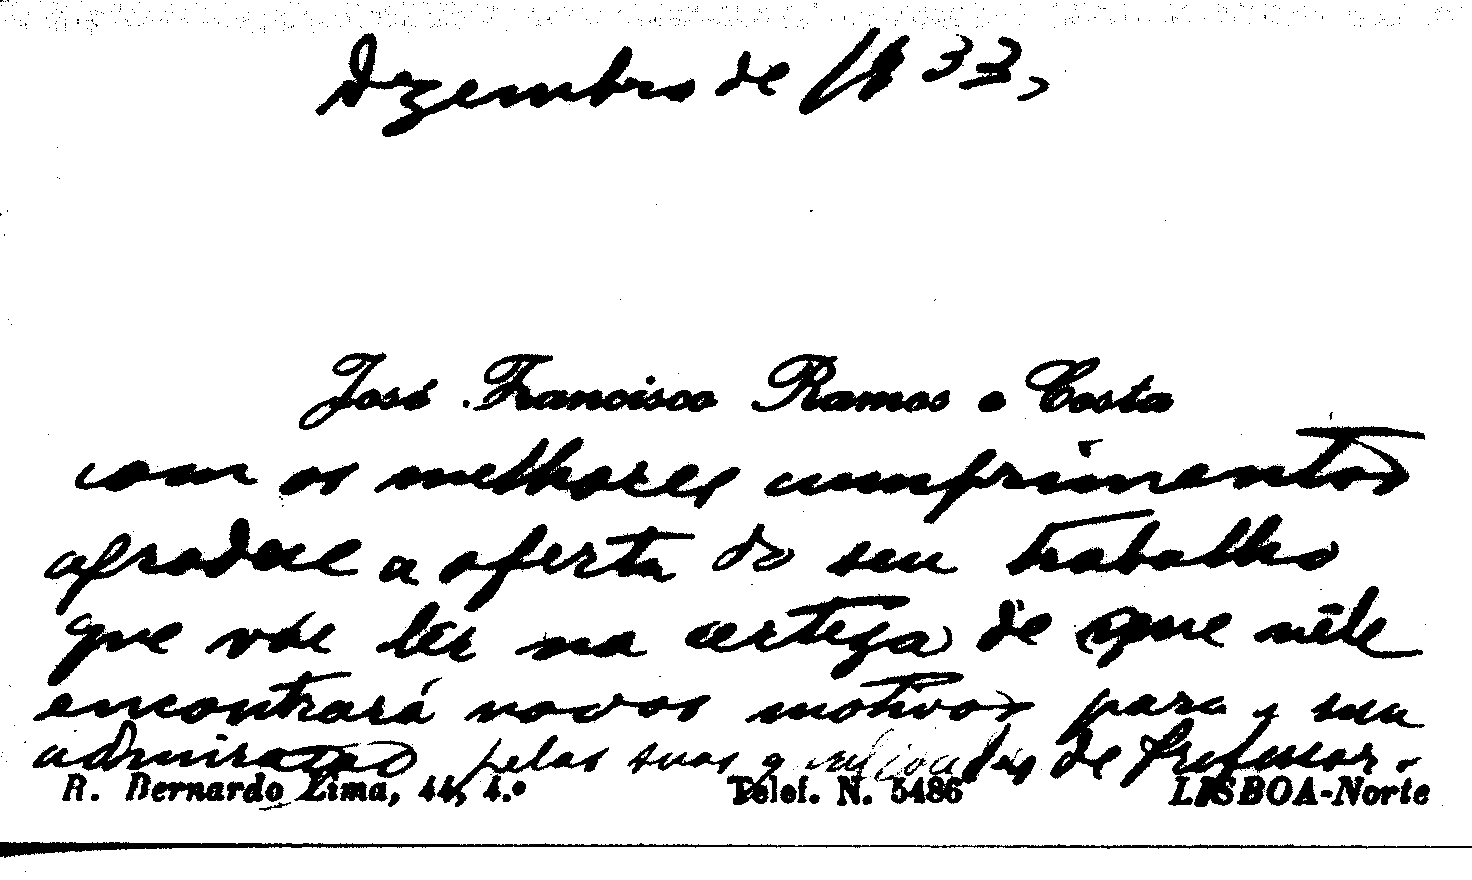 Dezembro de 1933,
José Francisco Ramos e Costa
com os melhores cumprimentos
agradece a oferta do seu trabalho
que vae ler na certeza de que nele
encontrará novos motivos para a sua
admiração pelas suas qualidades de Professor.
R. Bernardo Lima, 44, 4.º Telef. N. 5486 LISBOA-Norte